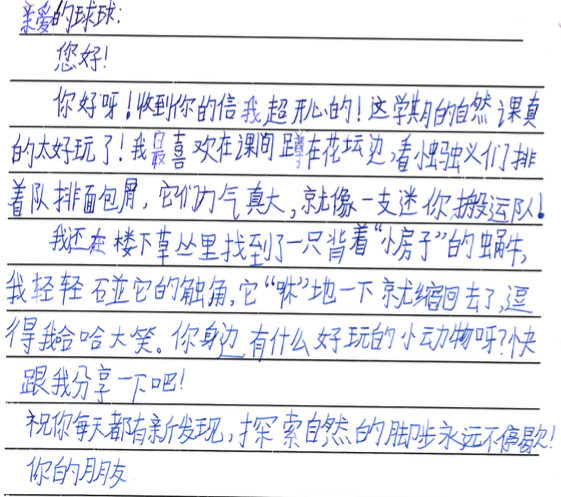 亲爱的球球:
您好!
你好呀!收到你的信我超开心的!这学期的自然课真
的太好玩了!我最喜欢在课间蹲在花坛边,看小蚂蚁们排
着队排面包屑,它们力气真大,就像一支迷你搬运队!
我还在楼下草丛里找到了一只背着“小房子”的蜗牛,
我轻轻碰它的触角,它“咻”地一下就缩回去了,逗
得我哈哈大笑。你身边有什么好玩的小动物呀?快
跟我分享一下吧!
祝你每天都有新发现,探索自然的脚步永远不停歇!
你的朋友